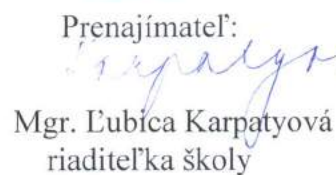 Prenajímateľ:
Mgr. Ľubica Karpatyová
riaditeľka školy